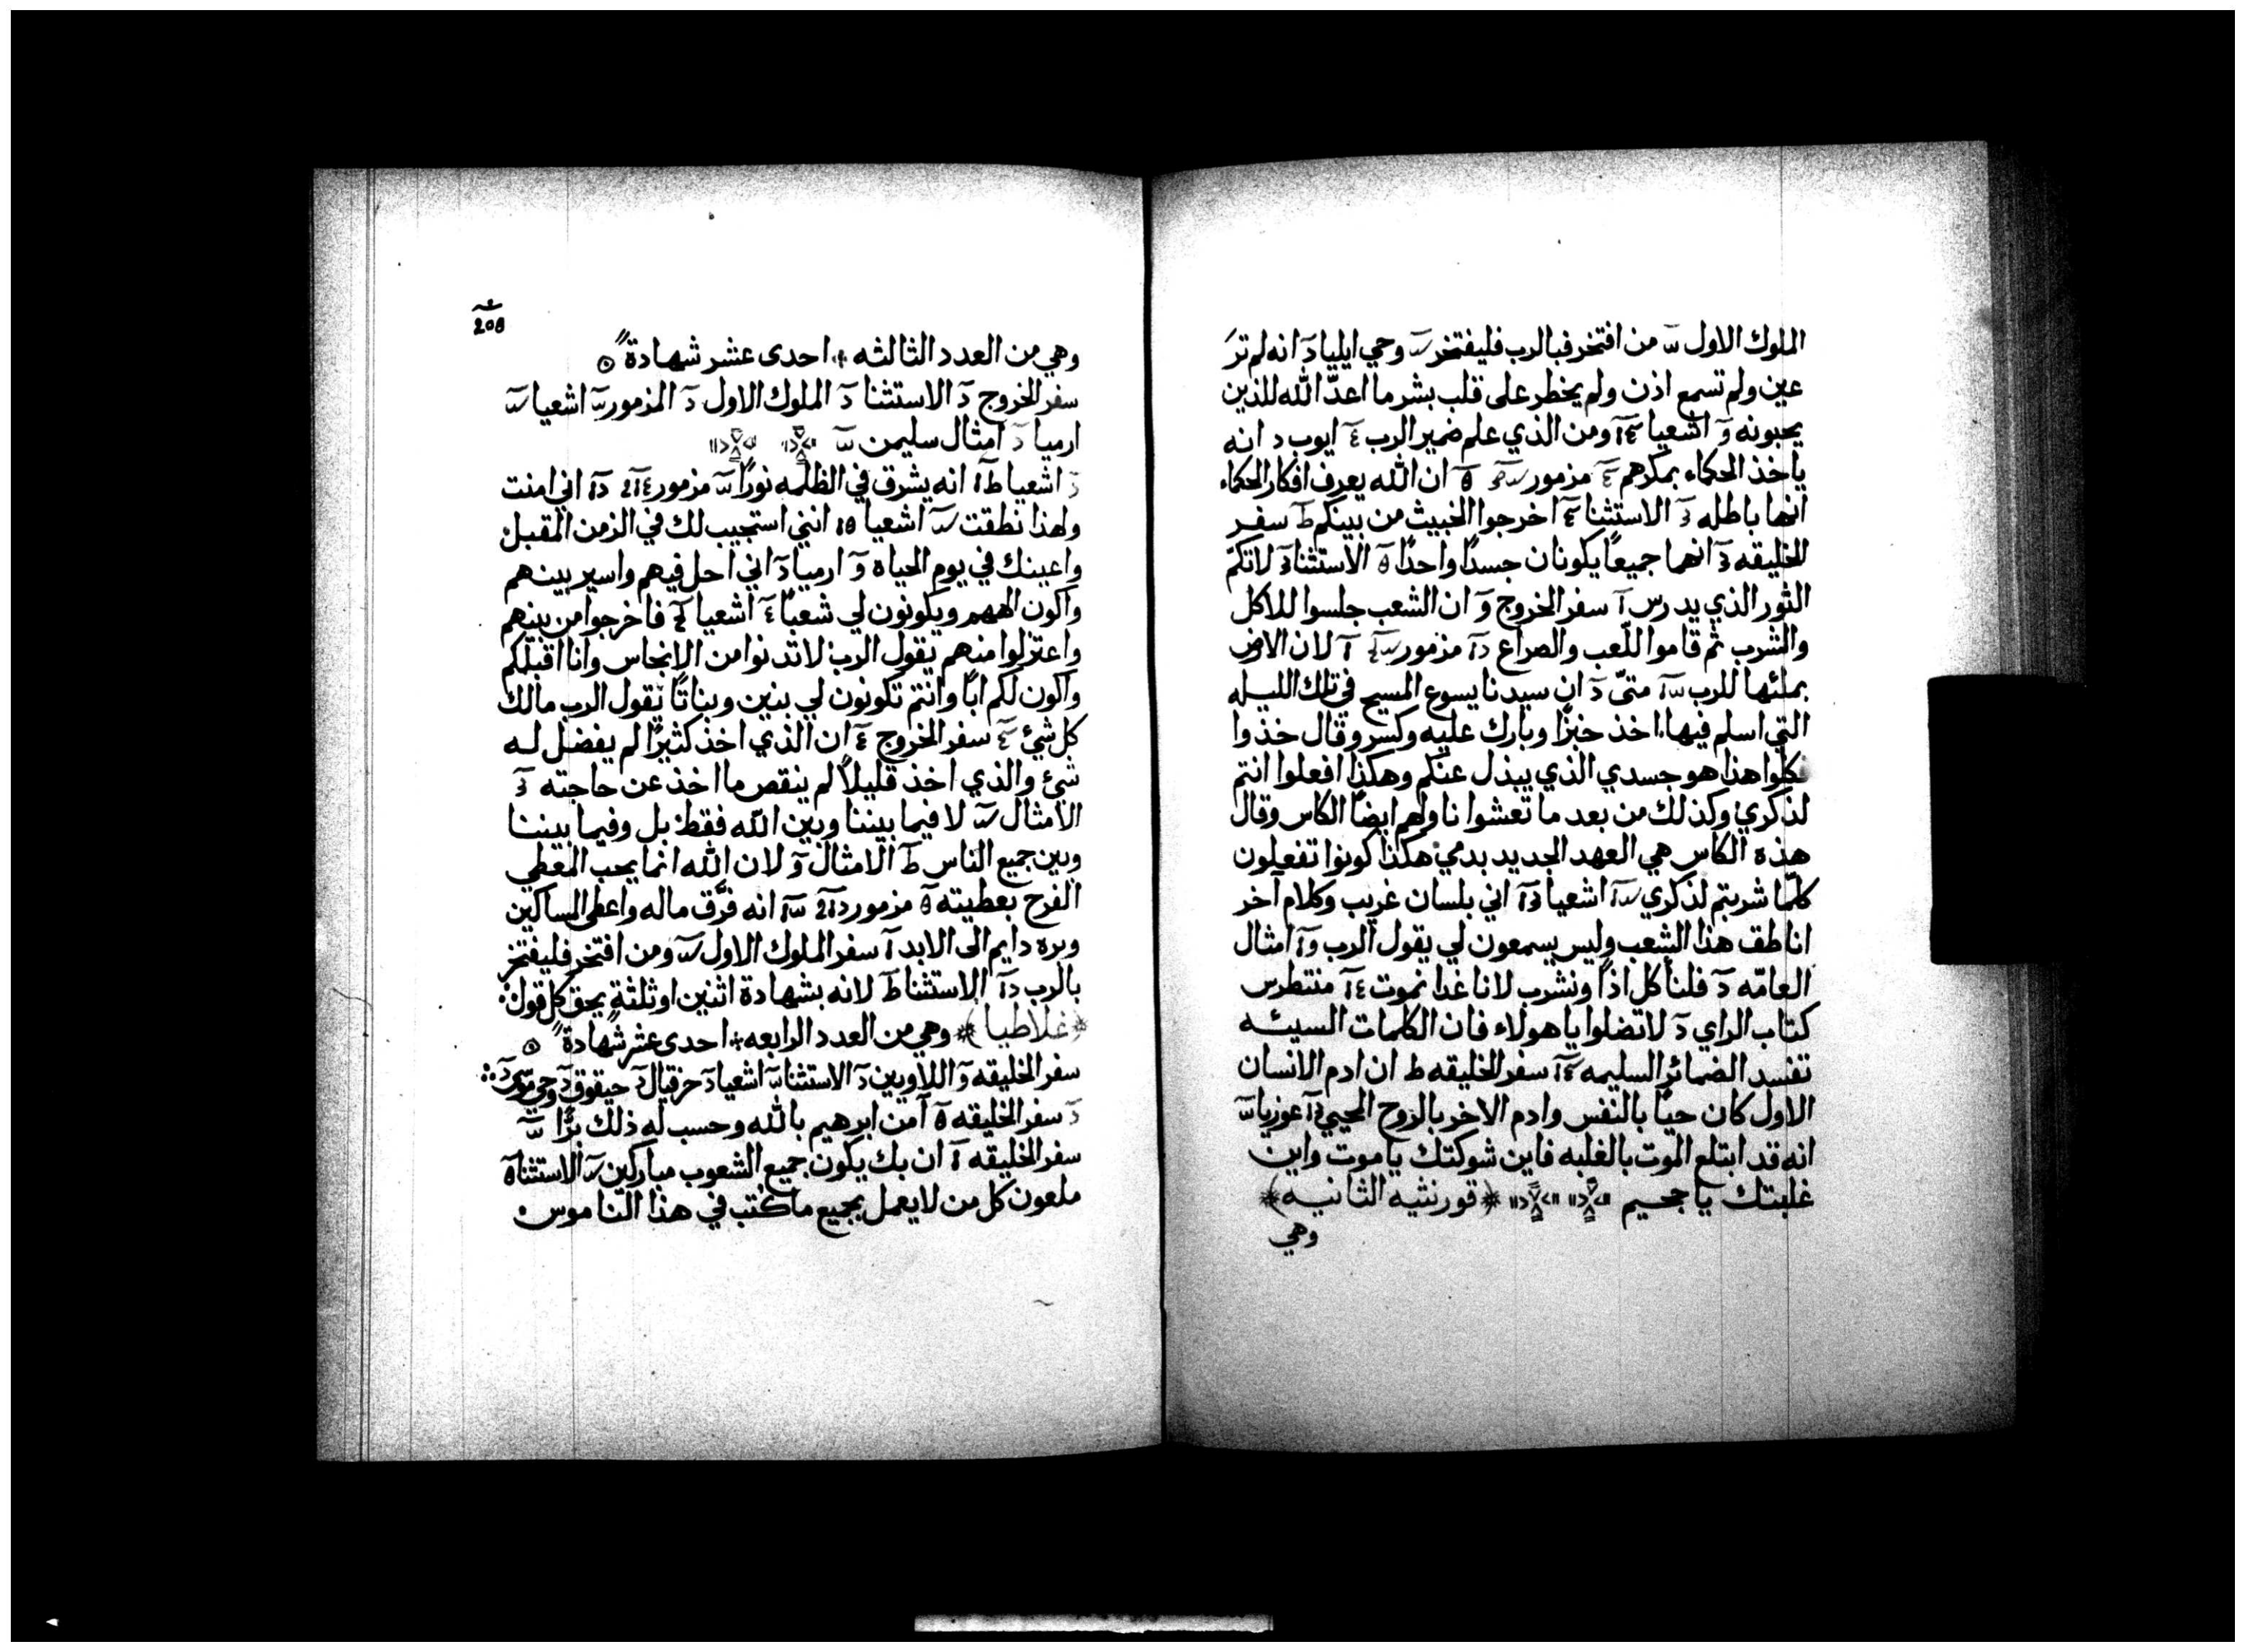 الملوك الاول من افتخر فبالرب فليفتخر وحي ايليا انه لم ترَ
عين ولم تسمع اذن ولم يخطر على قلب بشر ما اعدّ الله للذين
يحبونه اشعيا ومن الذي علم ضمير الرب ايوب انه
ياخذ الحكماء بمكرهم مزمور ان الله يعرف افكار الحكماء
انها باطله الاستثنا اخرجوا الخبيث من بينكم سفر
الخليقه انهما جميعًا يكونان جسدًا واحدًا الاستثنا لا تكمّ
الثور الذي يدرس سفر الخروج ان الشعب جلسوا للاكل
والشرب ثم قاموا اللّعب والصراع مزمور لان الارض
بملئها للرب متىّ ان سيدنا يسوع المسيح في تلك الليله
التي اسلم فيها اخذ خبزًا وبارك عليه وكسر وقال خذوا
فكلوا هذا هو جسدي الذي يبذل عنكم وهكذا افعلوا انتم
لذكري وكذلك من بعد ما تعشوا ناولهم ايضًا الكاس وقال
هذه الكاس هي العهد الجديد بدمي هكذا كونوا تفعلون
كلّما شربتم لذكري اشعيا اني بلسان غريب وكلام آخر
اناطق هذا الشعب وليس يسمعون لي يقول الرب امثال
العامّه فلناكل اذًا ونشرب لانا غدا نموت منتطرس
كتاب الراي لا تضلوا يا هولاء فان الكلمات السيئه
تفسد الضمائر السليمه سفر الخليقه ان ادم الانسان
الاول كان حيًا بالنفس وادم الاخر بالروح المحيي عوزيا
انه قد ابتلع الموت بالغلبه فاين شوكتك يا موت واين
غلبتك يا جحيم قورنثيه الثانيه
وهي
208
وهي من العدد الثالثه احدى عشر شهادة
سفر الخروج الاستثنا الملوك الاول المزمور اشعيا
ارميا امثال سليمن
اشعيا انه يشرق في الظلمه نورًا مزمور اني امنت
ولهذا نطقت اشعيا انني استجيب لك في الزمن المقبل
واعينك في يوم الحياة ارميا اني احل فيهم واسير بينهم
واكون الههم ويكونون لي شعبًا اشعيا فاخرجوا من بينهم
واعتزلوا منهم يقول الرب لا تدنوا من الانجاس وانا اقبلكم
واكون لكم ابًا وانتم تكونون لي بنين وبناتًا يقول الرب مالك
كل شئ سفر الخروج ان الذي اخذ كثيرًا لم يفضل له
شئ والذي اخذ قليلاً لم ينقص ما اخذ عن حاجته
الامثال لا فيما بيننا وبين الله فقط بل وفيما بيننا
وبين جميع الناس الامثال لان الله انما يحب المعطي
الفرح بعطيته مزمور انه فرَّق ماله واعطى المساكين
وبره دايم الى الابد سفر الملوك الاول ومن افتخر فليفتخر
بالرب الاستثنا لانه بشهادة اثنين او ثلثة يحق كل قول
غلاطيا وهي من العدد الرابعه احدى عشر شهادة
سفر الخليقه اللاويين الاستثنا اشعيا حزقيال حبقوق وحي موسى
سفر الخليقه آمن ابرهيم بالله وحسب له ذلك برًّا
سفر الخليقه ان بك يكون جميع الشعوب مباركين الاستثنا
ملعون كل من لا يعمل بجميع ما كتب في هذا الناموس